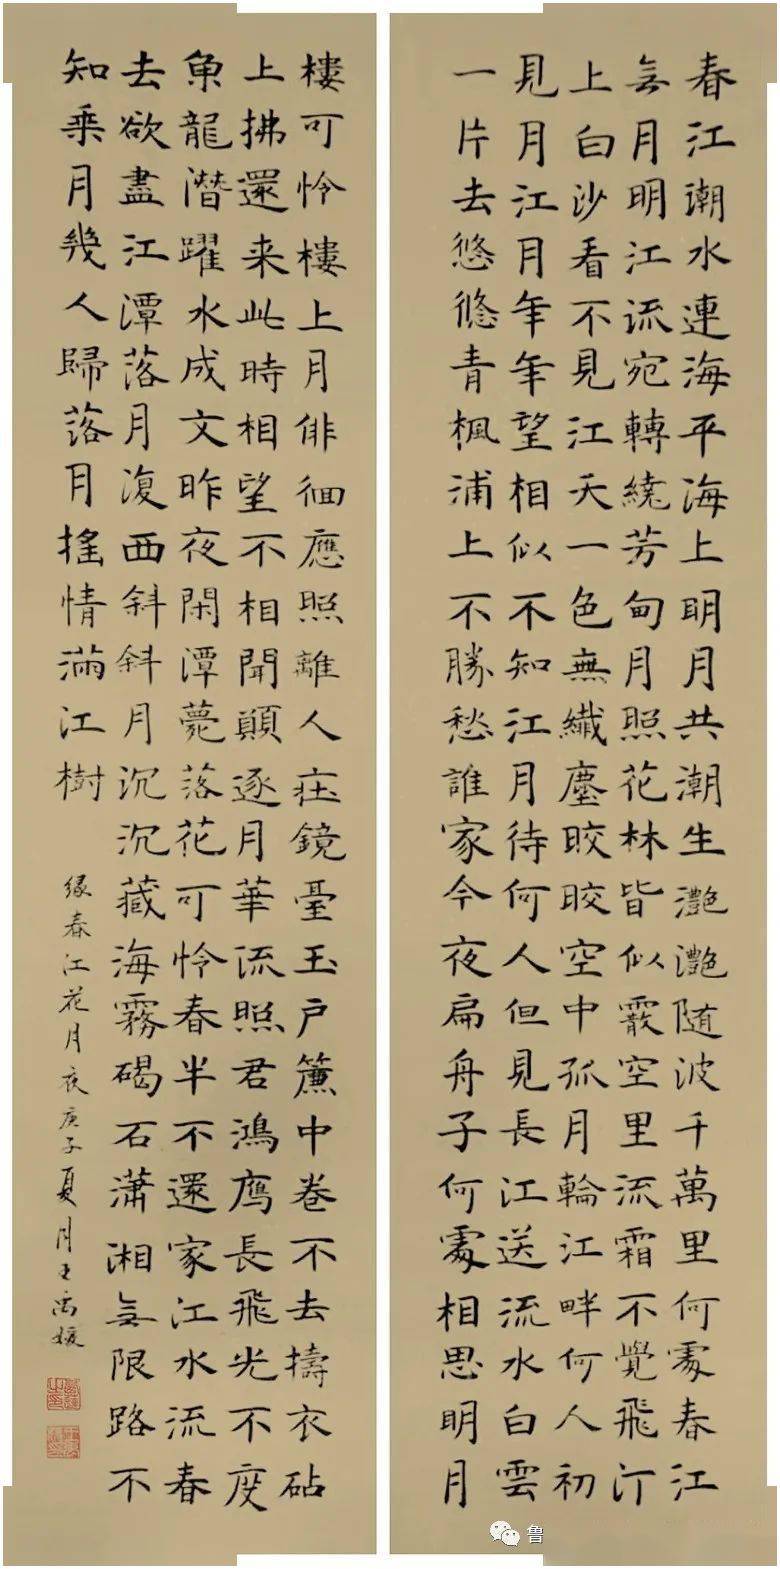 春江潮水連海平海上明月共潮生灔灔随波千萬里何處春江
无月明江流宛轉繞芳甸月照花林皆似霰空里流霜不覺飛汀
上白沙看不見江天一色無纖塵皎皎空中孤月輪江畔何人初
見月江月年年望相似不知江月待何人但見長江送流水白雲
一片去悠悠青楓浦上不勝愁誰家今夜扁舟子何處相思明月
樓可怜樓上月俳徊應照離人粧鏡臺玉户簾中卷不去擣衣砧
上拂還来此時相望不相聞願逐月華流照君鴻鴈長飛光不度
魚龍潛躍水成文昨夜閑潭夢落花可怜春半不還家江水流春
去欲盡江潭落月復西斜斜月沉沉藏海霧碣石瀟湘无限路不
知乘月幾人歸落月摇情滿江樹
緑春江花月夜庚子夏月王禹媛
鲁